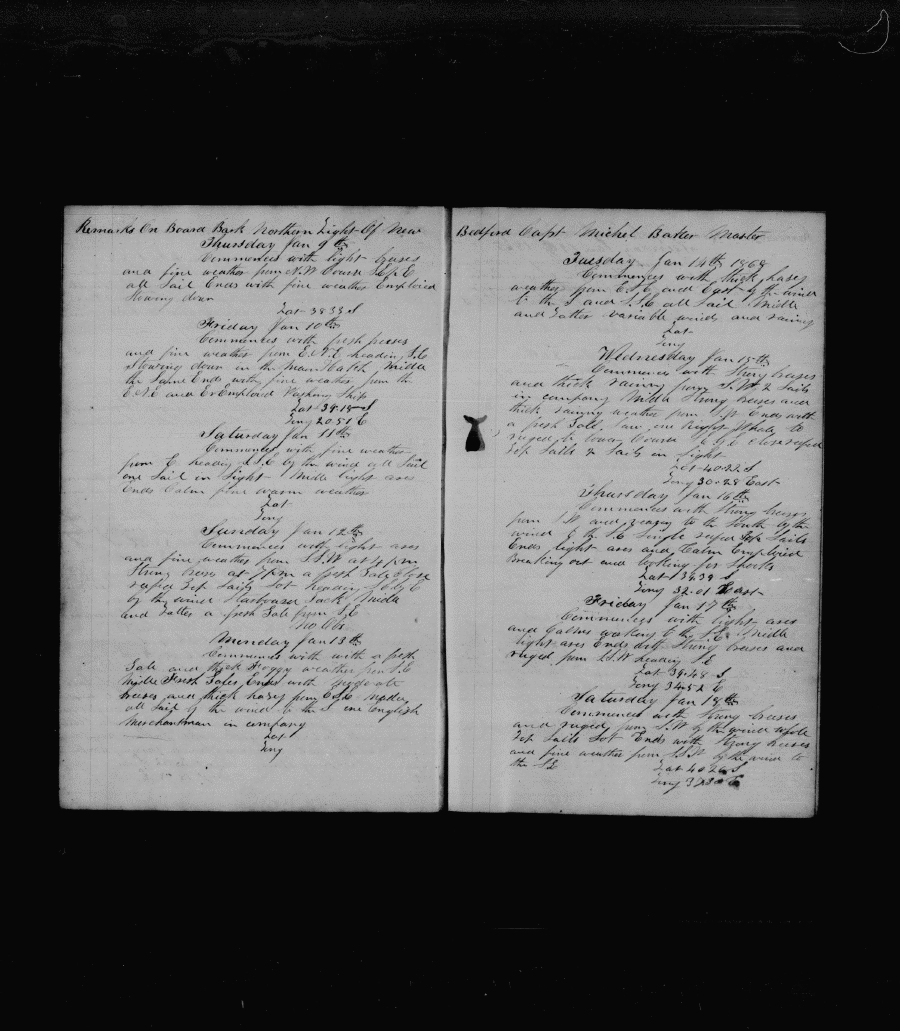 Remarks On Board Bark Northern Light Of New
Thursday Jan 9th
Commences with light breses
and fine weather from N.W Course S.E by E
all Sail Ends with fine weather Employed
Stowing down
Lat 38 39 S
Friday Jan 10th
Commences with fresh breses
and fine weather from E.N.E heading S.E
Stowing down in the Main Hatch Middle
the Same Ends with fine weather from the
E.N.E and Employed Washing Ship
Lat 39-15 S
Long 20 51 E
Saturday Jan 11th
Commences with fine weather
from E heading S.S.E by the wind all Sail
one Sail in Sight Middle light ares
Ends Calm fine warm weather
Lat
Long
Sunday Jan 12th
Commences with light ares
and fine weather from S.S.W at 4 P.m
Strong breses at 7 P.m a fresh Gale Close
reefed Top Sails Lot heading
by the wind Starboard Tack Middle
and Latter a fresh Gale from S.E
no Obs
Monday Jan 13th
Commences with with a fresh
Gale and thick Foggy weather from S.E
Middle Fresh Gales Ends with moderate
breses and thick hazey from E.S.E under
all Sail by the wind to the S one English
Merchantman in company
Lat
Long
Bedford Capt Michel Baker Master
Tuesday Jan 14th 1868
Commences with thick hasey
weather from E.S.E and East by the wind
to the S and S.S.E all Sail Middle
and Latter variable winds and rainey
Lat
Long
Wednesday Jan 15th
Commences with Strong breses
and thick rainey from S.W 2 Sails
in company Middle Strong breses and
thick rainey weather from Ends with
a fresh Gale Saw one Right Whale to
ruged to lower Course Close reefed
Top Sails 2 Sails in Sight
Lat 40-22 S
Long 30-28 East
Thursday Jan 16th
Commences with Strong breses
from S.W and ruged to the South by the
wind to the S.E Single reefed Top Sails
Ends light ares and Calm Employed
Breaking out and looking for Shooks
Lat 39 39 S
Long 32-01 East
Friday Jan 17th
Commences with light ares
and Calms working to the S.E Middle
light ares Ends with Strong breses and
ruged from S.S.W heading S.E
Lat 39-48 S
Long 34 52 E
Saturday Jan 18th
Commences with Strong breses
and ruged from S.W by the wind whole
Top Sails Lot Ends with Strong breses
and fine weather from S.S.W by the wind to
the S.E
Lat 40 26 S
Long 37 30 E